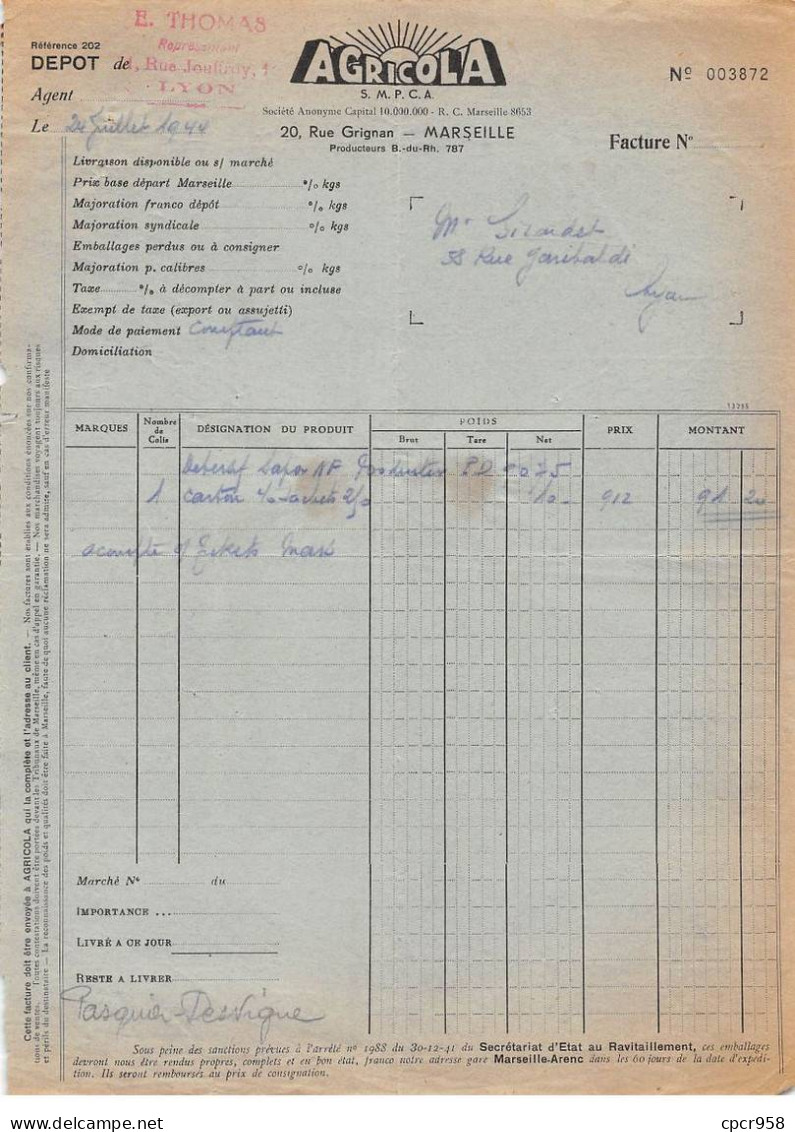 E. THOMAS
Représentant
Rue Jouffroy,
LYON
Référence 202
DEPOT de
Agent
Le 24 Juillet 1944
AGRICOLA
S. M. P. C. A.
Société Anonyme Capital 10.000.000 - R. C. Marseille 8653
20, Rue Grignan — MARSEILLE
Producteurs B.-du-Rh. 787
Nº 003872
Facture Nº
Livraison disponible ou s/ marché
Prix base départ Marseille % kgs
Majoration franco dépôt % kgs
Majoration syndicale % kgs
Emballages perdus ou à consigner
Majoration p. calibres % kgs
Taxe % à décompter à part ou incluse
Exempt de taxe (export ou assujetti)
Mode de paiement Comptant
Domiciliation
Mr Girardet
58 Rue Garibaldi
Lyon
13255
MARQUES
Nombre de Colis
DÉSIGNATION DU PRODUIT
POIDS
Brut
Tare
Net
PRIX
MONTANT
1 carton 10 912 91 20
acompte
Marché Nº du
IMPORTANCE ...
LIVRÉ A CE JOUR
RESTE A LIVRER
Pasquier-Desvigne
Sous peine des sanctions prévues à l'arrêté nº 1988 du 30-12-41 du Secrétariat d'Etat au Ravitaillement, ces emballages
devront nous être rendus propres, complets et en bon état, franco notre adresse gare Marseille-Arenc dans les 60 jours de la date d'expédi-
tion. Ils seront remboursés au prix de consignation.
Cette facture doit être envoyée à AGRICOLA qui la complète et l'adresse au client. — Nos factures sont établies aux conditions énoncées sur nos confirma-
tions de ventes. Toutes contestations doivent être portées devant les Tribunaux de Marseille, même en cas d'appel en garantie. — Nos marchandises voyagent toujours aux risques
et périls du destinataire — La reconnaissance des poids et qualités doit être faite à Marseille, faute de quoi aucune réclamation ne sera admise, sauf en cas d'erreur manifeste
cpcr958